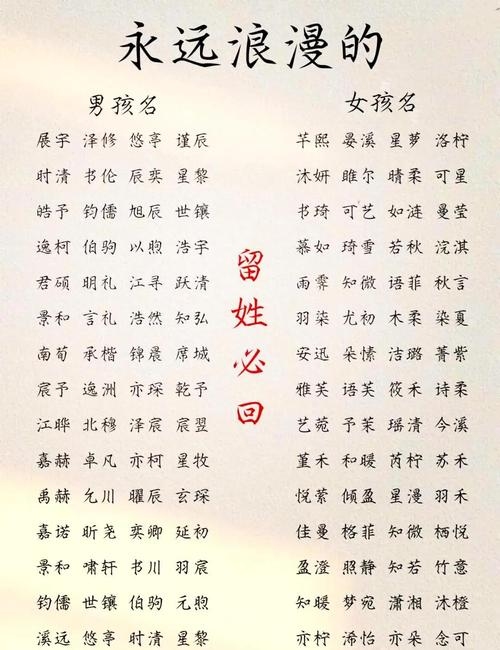 永远浪漫的
男孩名
展宇 泽修 悠亭 谨辰
时清 书伦 辰奕 星黎
皓予 钧儒 旭辰 世镶
逸柯 伯驹 以煦 浩宇
君硕 明礼 江寻 跃清
景和 言礼 浩然 知弘
南荀 承楷 锦晨 席城
宸予 逸洲 亦琛 乾予
江晔 北穆 泽宸 宸翌
嘉赫 卓凡 亦柯 星牧
禹赫 乞川 曜辰 玄琛
嘉诺 昕尧 奕卿 延初
景和 啸轩 书川 羽宸
钧儒 世镶 伯驹 元煦
溪远 悠亭 时清 星黎
留姓必回
女孩名
芊熙 晏溪 星萝 洛柠
沐妍 雎尔 晴柔 可星
书琦 可艺 如涟 曼莹
慕如 琦雪 若秋 浣淇
雨霏 知微 语菲 秋言
羽染 尤初 木柔 染夏
安迅 朵愫 洁璐 菁紫
雅芙 语芙 筱禾 诗柔
艺菀 予茉 瑶清 今溪
堇禾 和暖 芮柠 苏禾
悦萦 倾盈 星漫 羽禾
佳曼 格菲 知微 栖悦
盈澄 照静 知若 竹意
知暖 梦宛 潇湘 沐橙
亦柠 浠怡 亦朵 念可